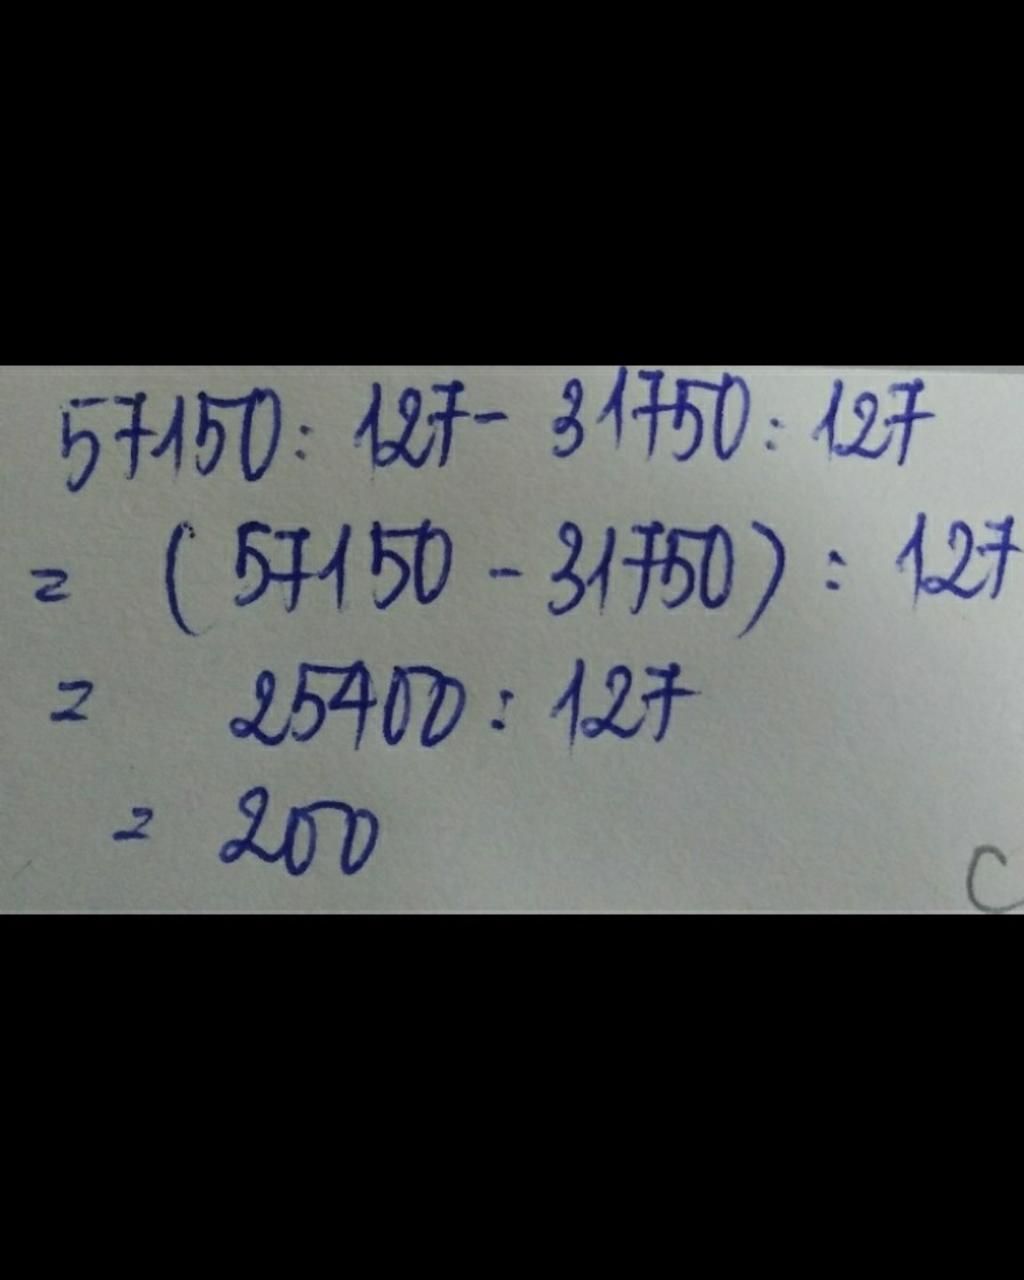 57150 : 127 - 31750 : 127
= ( 57150 - 31750 ) : 127
= 25400 : 127
= 200
C